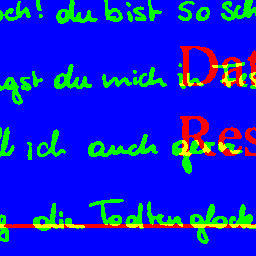 och! du bist so sch
Dat
agst du mich in Fes
Res
ll ich auch gern
g die Todtenglocke